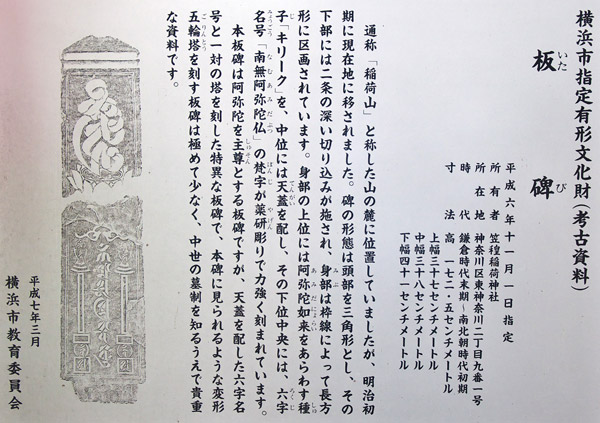 横浜市指定有形文化財（考古資料）
板碑
いた び
平成六年十一月一日指定
所有者 笠䅣稲荷神社
所在地 神奈川区東神奈川二丁目九番一号
時代 鎌倉時代末期～南北朝時代初期
寸法 高 一七二・五センチメートル
上幅三十七センチメートル
中幅三十八センチメートル
下幅四十一センチメートル
通称「稲荷山」と称した山の麓に位置していましたが、明治初
期に現在地に移されました。碑の形態は頭部を三角形とし、その
下部には二条の深い切り込みが施され、身部は枠線によって長方
形に区画されています。身部の上位には阿弥陀如来をあらわす種
子「キリーク」を、中位には天蓋を配し、その下位中央には、六字
名号「南無阿弥陀仏」の梵字が薬研彫りで力強く刻まれています。
本板碑は阿弥陀を主尊とする板碑ですが、天蓋を配した六字名
号と一対の塔を刻した特異な板碑で、本碑に見られるような変形
五輪塔を刻す板碑は極めて少なく、中世の墓制を知るうえで貴重
な資料です。
平成七年三月
横浜市教育委員会